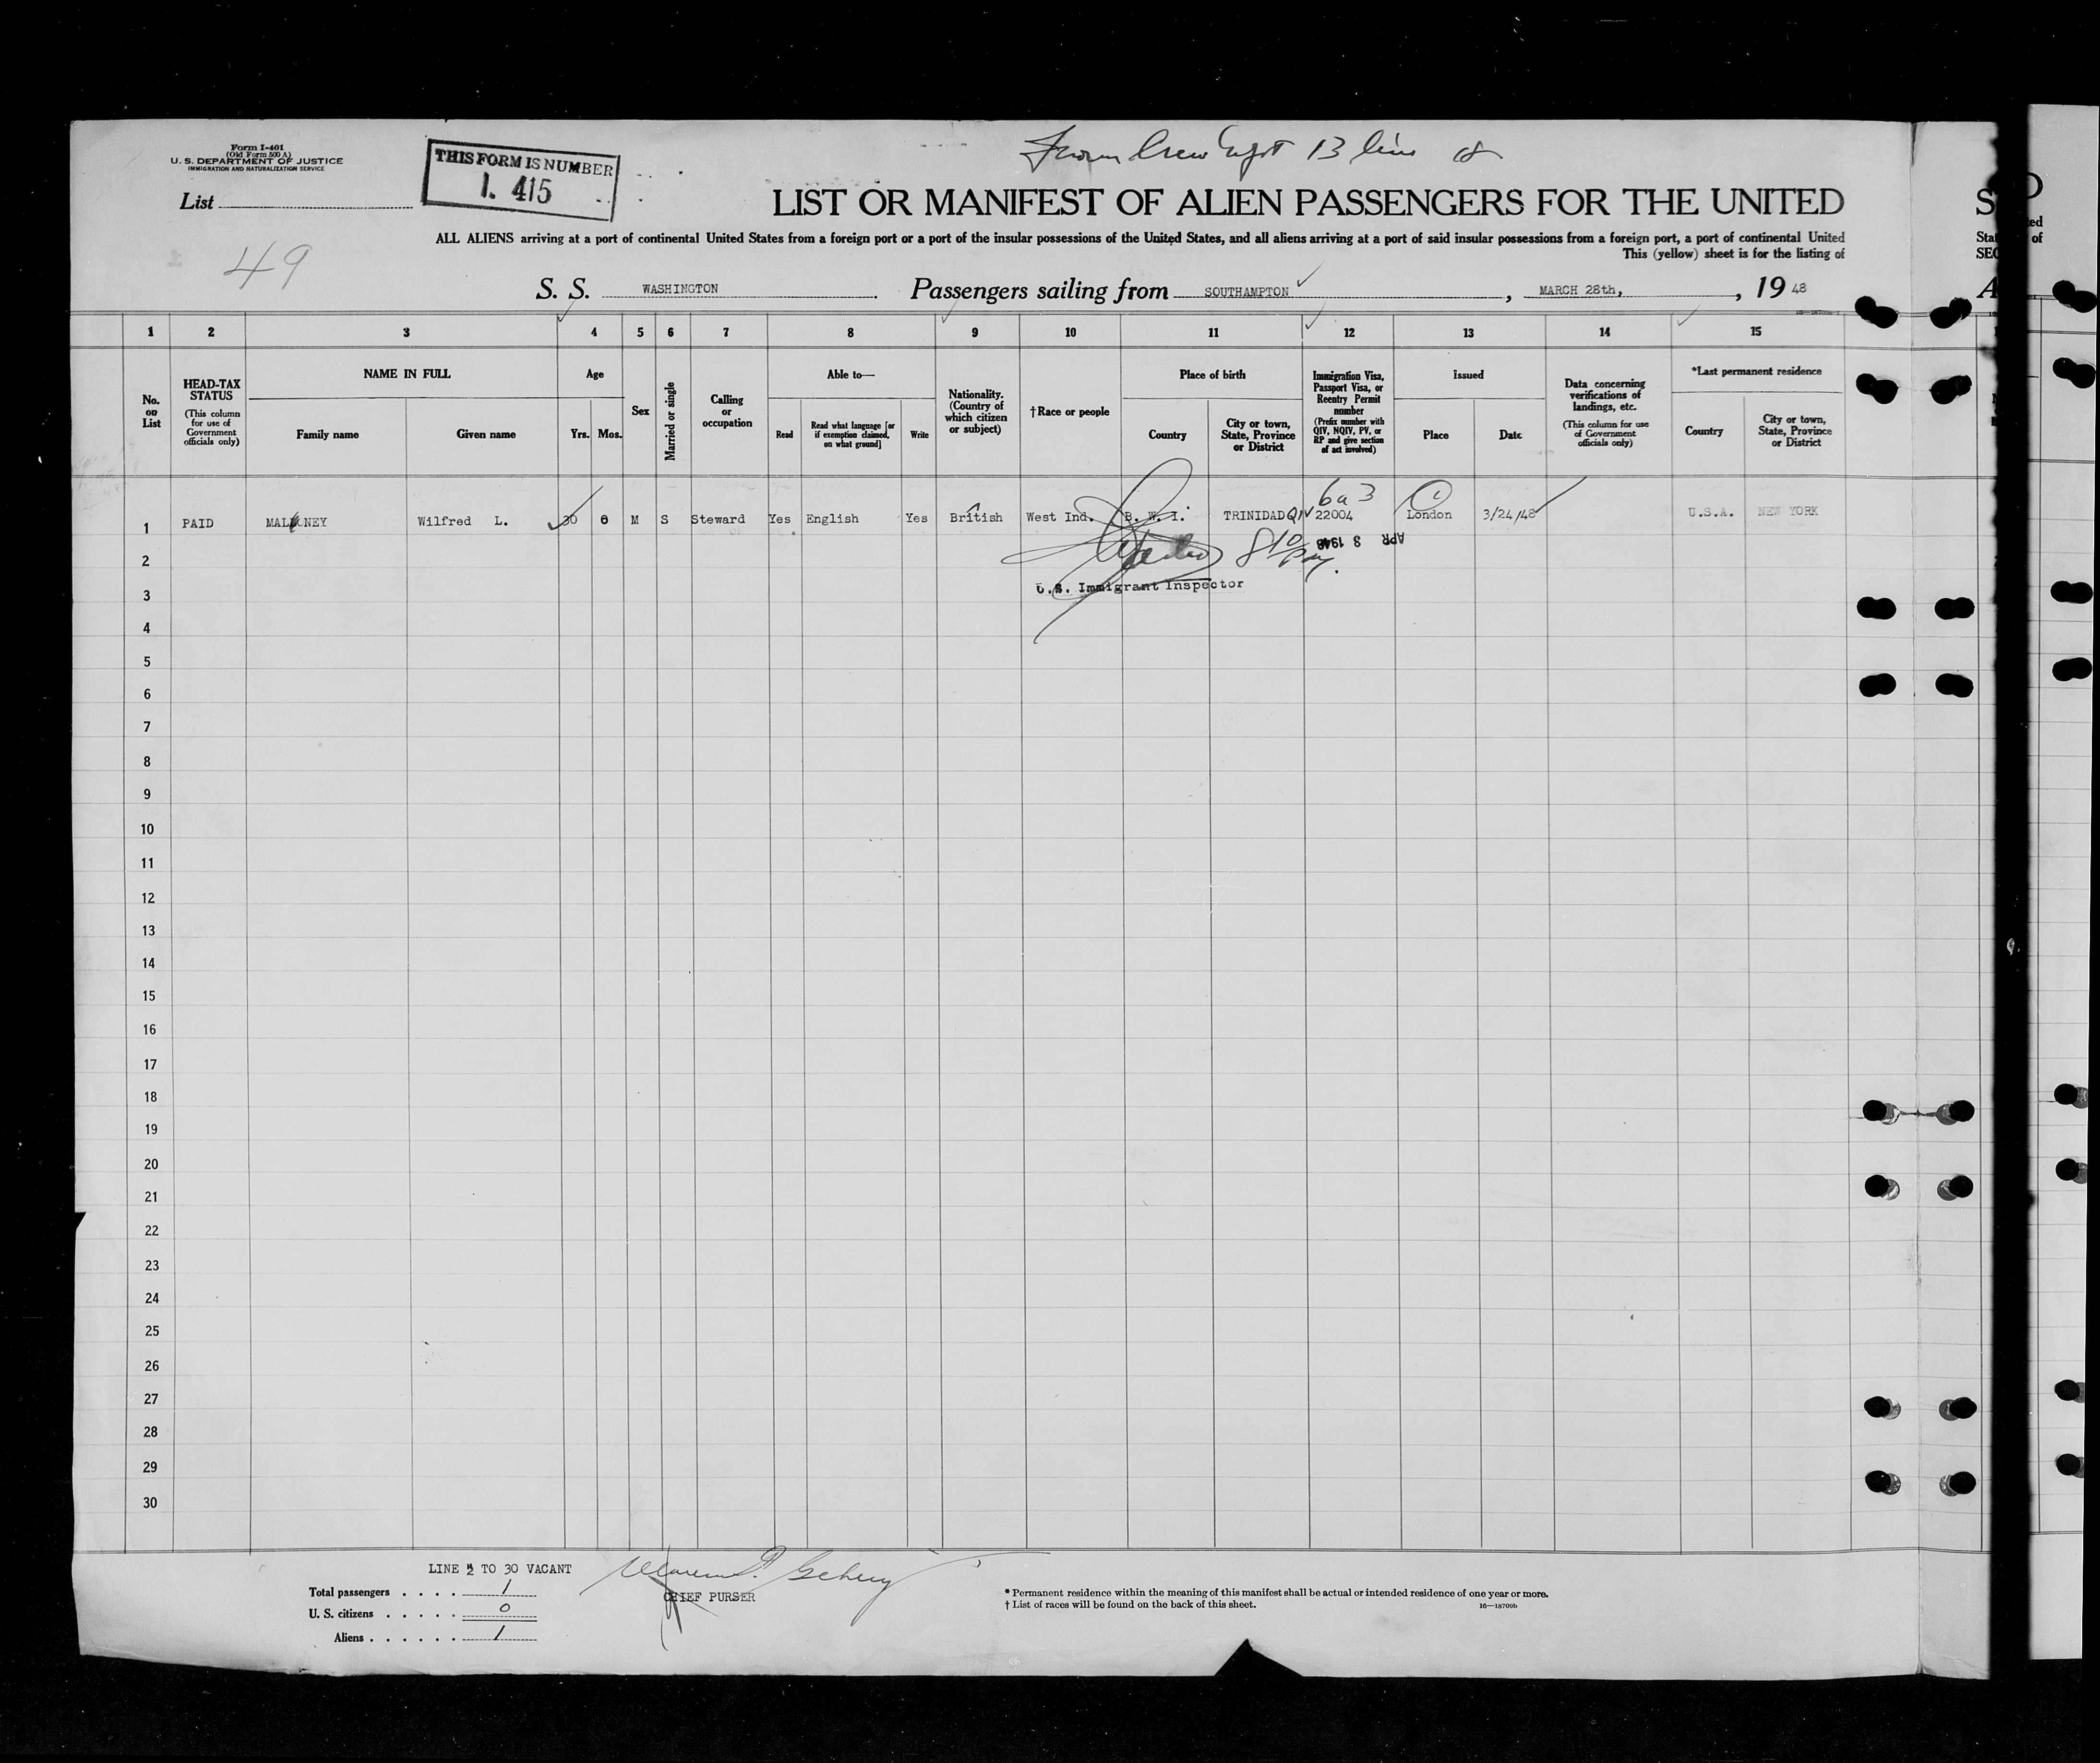 Form I-401
(Old Form 500 A)
U. S. DEPARTMENT OF JUSTICE
IMMIGRATION AND NATURALIZATION SERVICE
THIS FORM IS NUMBER
I. 415
List
49
13 line
LIST OR MANIFEST OF ALIEN PASSENGERS FOR THE UNITED
ALL ALIENS arriving at a port of continental United States from a foreign port or a port of the insular possessions of the United States, and all aliens arriving at a port of said insular possessions from a foreign port, a port of continental United
This (yellow) sheet is for the listing of
S. S. WASHINGTON. Passengers sailing from SOUTHAMPTON, MARCH 28th, , 19 48
1 2 3 4 5 6 7 8 9 10 11 12 13 14 15
No. on List
HEAD-TAX STATUS
(This column for use of Government officials only)
NAME IN FULL
Family name
Given name
Age
Yrs. Mos.
Sex
Married or single
Calling or occupation
Able to—
Read
Read what language [or if exemption claimed, on what ground]
Write
Nationality. (Country of which citizen or subject)
†Race or people
Place of birth
Country
City or town, State, Province or District
Immigration Visa, Passport Visa, or Reentry Permit number
(Prefix number with QIV, NQIV, PV, or RP and give section of act involved)
Issued
Place
Date
Data concerning verifications of landings, etc.
(This column for use of Government officials only)
*Last permanent residence
Country
City or town, State, Province or District
6a3
1 PAID Wilfred L. 30 M S Steward Yes English Yes British West Ind. B. W. I. TRINIDAD 22004 London 3/24/48 U.S.A. NEW YORK
APR 8 1948
2
U.S. Immigrant Inspector
3
4
5
6
7
8
9
10
11
12
13
14
15
16
17
18
19
20
21
22
23
24
25
26
27
28
29
30
LINE 2 TO 30 VACANT
Total passengers . . . . 1
U. S. citizens . . . . . 0
Aliens . . . . . . 1
CHIEF PURSER
* Permanent residence within the meaning of this manifest shall be actual or intended residence of one year or more.
† List of races will be found on the back of this sheet.
16—18700b